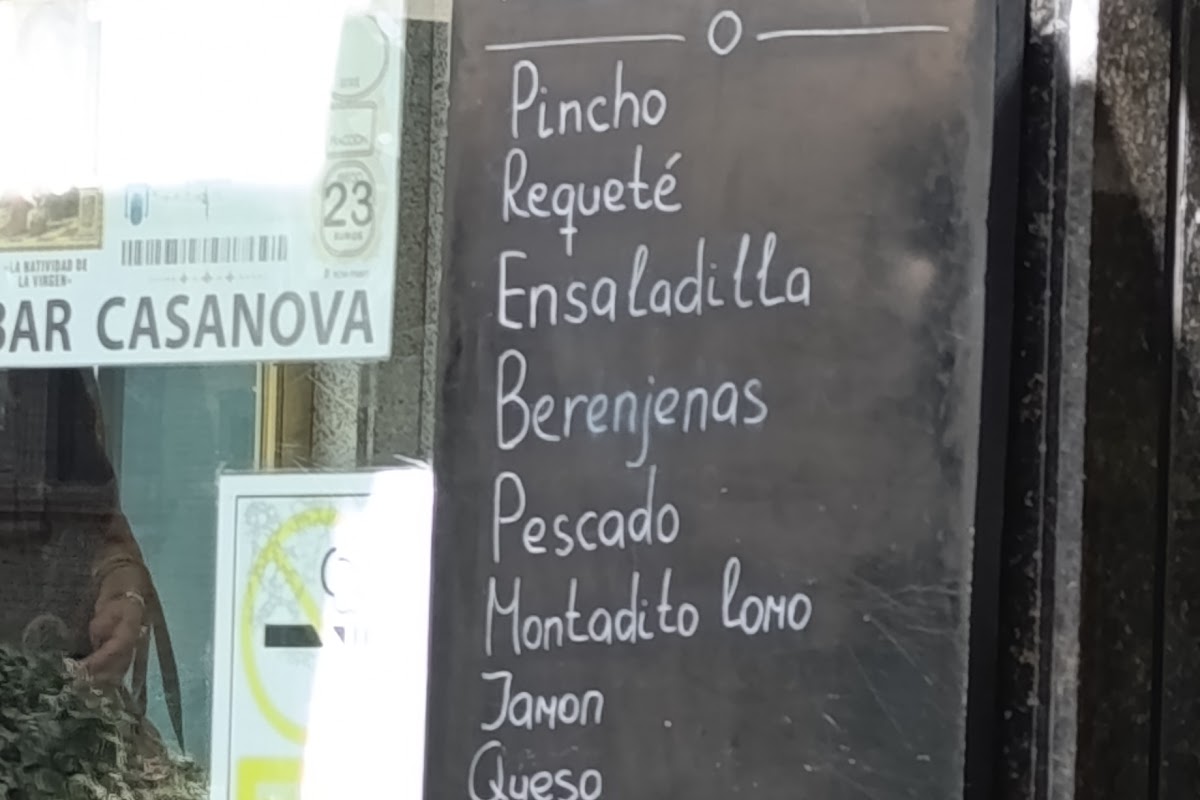 Pincho
Requeté
Ensaladilla
Berenjenas
Pescado
Montadito lomo
Jamon
Queso
23
EUROS
«LA NATIVIDAD DE
LA VIRGEN»
BAR CASANOVA